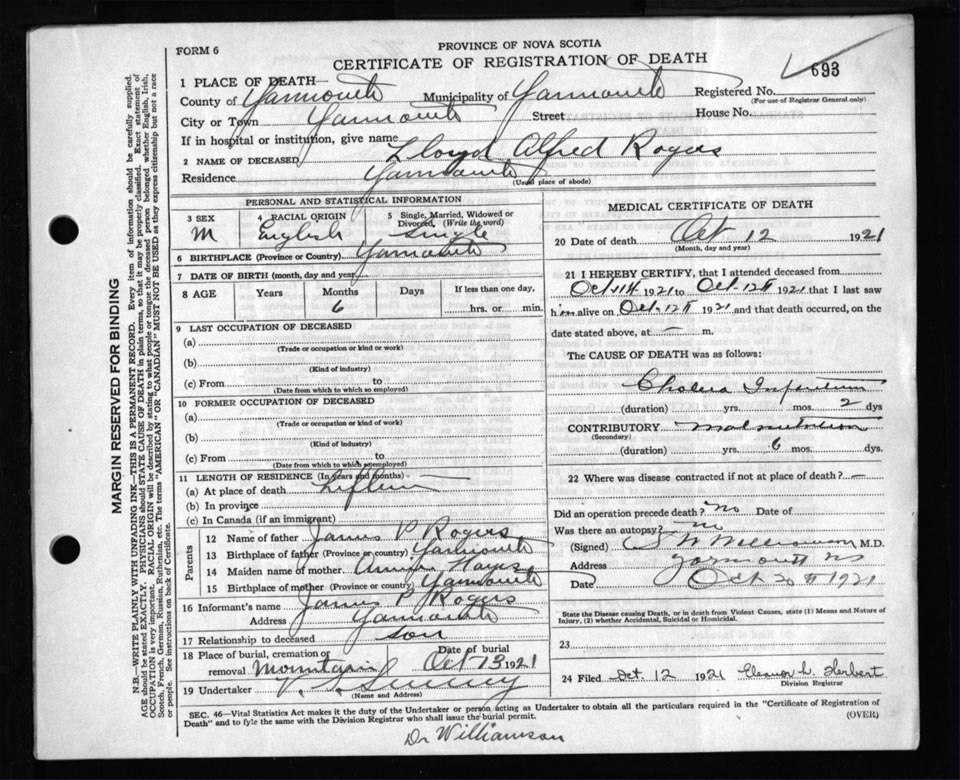 FORM 6
PROVINCE OF NOVA SCOTIA
CERTIFICATE OF REGISTRATION OF DEATH
593
1 PLACE OF DEATH—
County of Yarmouth Municipality of Yarmouth Registered No.
(For use of Registrar General only)
City or Town Yarmouth Street House No.
If in hospital or institution, give name
2 NAME OF DECEASED Lloyd Alfred Rogers
Residence Yarmouth
(Usual place of abode)
PERSONAL AND STATISTICAL INFORMATION
3 SEX 4 RACIAL ORIGIN 5 Single, Married, Widowed or Divorced, (Write the word)
M English Single
6 BIRTHPLACE (Province or Country) Yarmouth
7 DATE OF BIRTH (month, day and year)
8 AGE Years Months Days If less than one day,
6 hrs. or min.
9 LAST OCCUPATION OF DECEASED
(a)
(Trade or occupation or kind of work)
(b)
(Kind of industry)
(c) From to
(Date from which to which so employed)
10 FORMER OCCUPATION OF DECEASED
(a)
(Trade or occupation or kind of work)
(b)
(Kind of industry)
(c) From to
(Date from which to which so employed)
11 LENGTH OF RESIDENCE (In years and months)-
(a) At place of death Lifetime
(b) In province
(c) In Canada (if an immigrant)
Parents
12 Name of father James P Rogers
13 Birthplace of father (Province or country) Yarmouth
14 Maiden name of mother Hayes
15 Birthplace of mother (Province or country) Yarmouth
16 Informant's name James P Rogers
Address Yarmouth
17 Relationship to deceased son
18 Place of burial, cremation or removal Mountain Date of burial Oct 13 1921
19 Undertaker V. S. Sweeny
(Name and Address)
MEDICAL CERTIFICATE OF DEATH
20 Date of death Oct 12 1921
(Month, day and year)
21 I HEREBY CERTIFY, that I attended deceased from
Oct 11th 1921 to Oct. 12th 1921 that I last saw
him alive on Oct. 12th 1921 and that death occurred, on the
date stated above, at — m.
The CAUSE OF DEATH was as follows:
Cholera Infantum
(duration) yrs. mos. 2 dys
CONTRIBUTORY Malnutrition
(Secondary)
(duration) yrs. 6 mos. dys
22 Where was disease contracted if not at place of death?—
Did an operation precede death? no Date of
Was there an autopsy? no
(Signed) Williamson M.D.
Address Yarmouth NS
Date Oct 20th 1921
State the Disease causing Death, or in death from Violent Causes, state (1) Means and Nature of
Injury, (2) whether Accidental, Suicidal or Homicidal.
23
24 Filed Oct. 12 1921 Eleanor L. Herbert
Division Registrar
SEC. 46—Vital Statistics Act makes it the duty of the Undertaker or person acting as Undertaker to obtain all the particulars required in the "Certificate of Registration of
Death" and to fyle the same with the Division Registrar who shall issue the burial permit. (OVER)
Dr Williamson
MARGIN RESERVED FOR BINDING
N.B.—WRITE PLAINLY WITH UNFADING INK—THIS IS A PERMANENT RECORD. Every item of information should be carefully supplied.
AGE should be stated EXACTLY. PHYSICIANS should STATE CAUSE OF DEATH in plain terms, so that it may be properly classified. Exact statement of
OCCUPATION is very important. RACIAL ORIGIN will be described by stating to what people or tongue the deceased person belonged whether English, Irish,
Scotch, French, German, Russian, Ruthenian, etc. The terms "AMERICAN" OR "CANADIAN" MUST NOT BE USED as they express citizenship but not a race
or people. See instructions on back of Certificate.